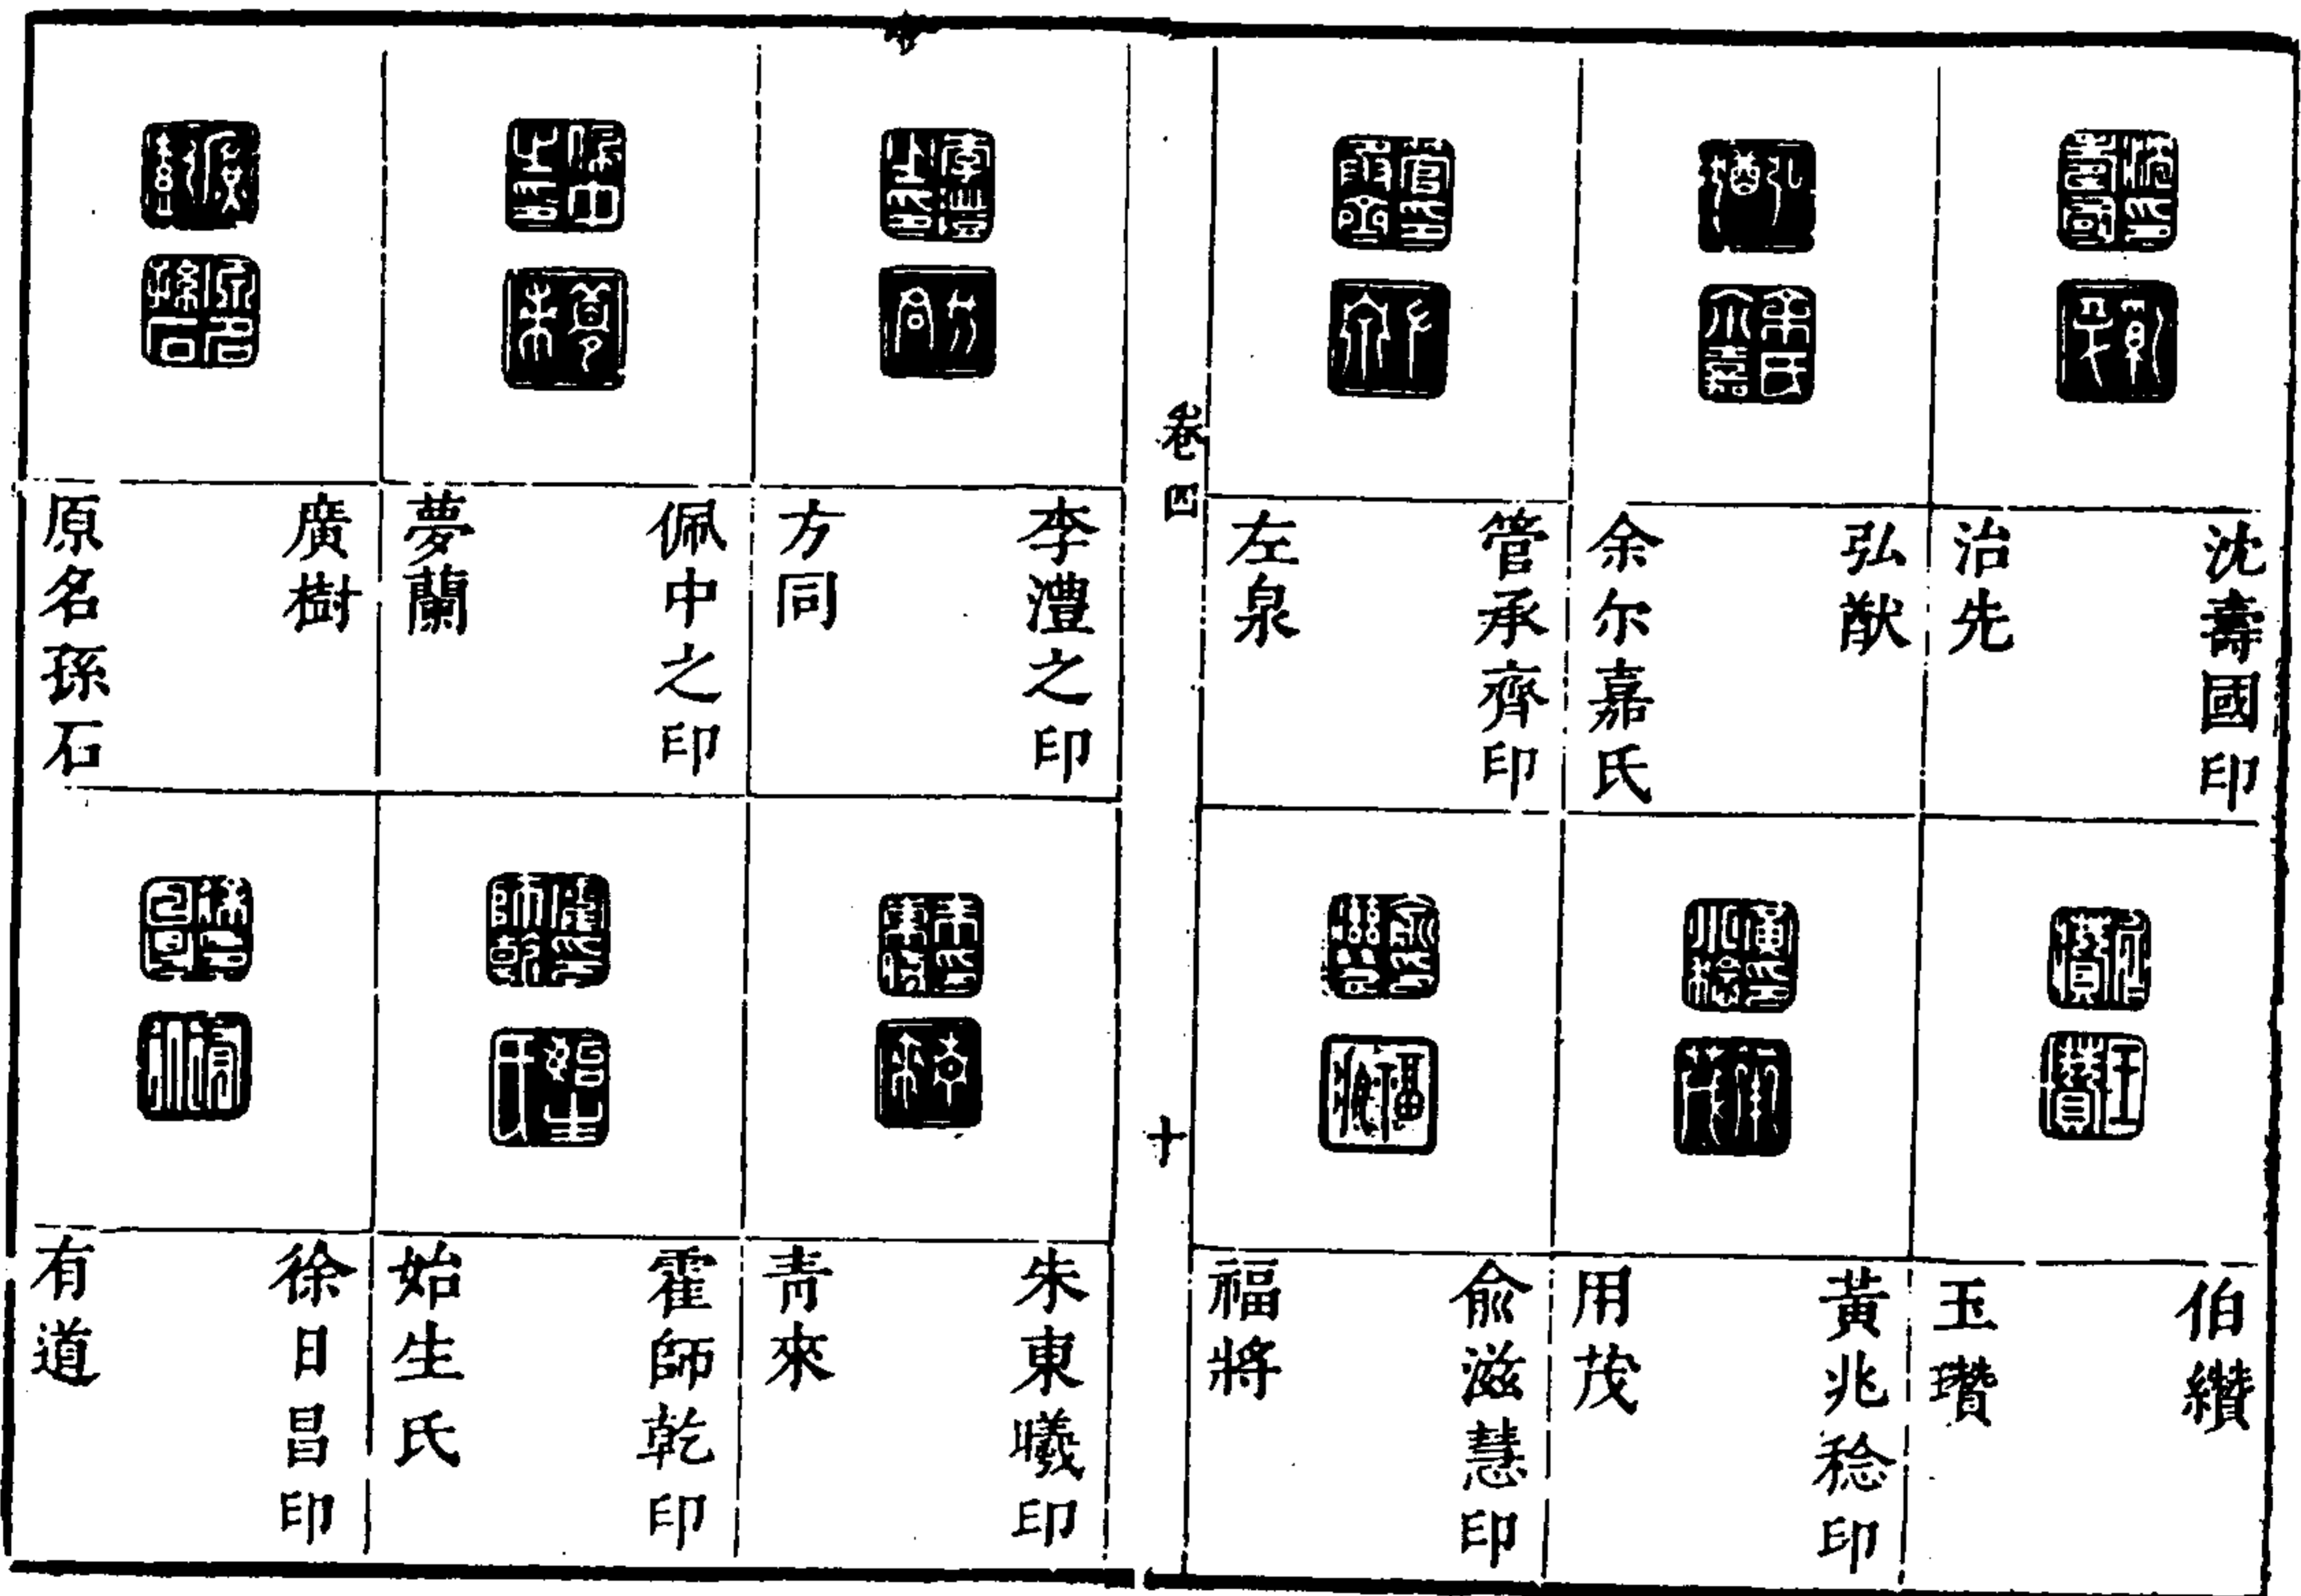 沈壽國印
治先
弘猷
余尔嘉氏
管承齊印
左泉
伯纘
玉瓚
黃兆稔印
用茂
俞滋慧印
福將
卷四
十
李澧之印
方同
佩中之印
夢蘭
廣樹
原名孫石
朱東曦印
青來
霍師乾印
始生氏
徐日昌印
有道